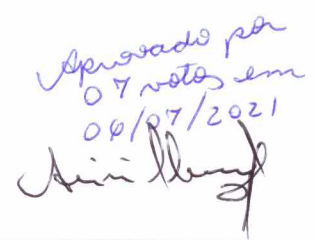 Aprovado por
07 votos em
06/07/2021